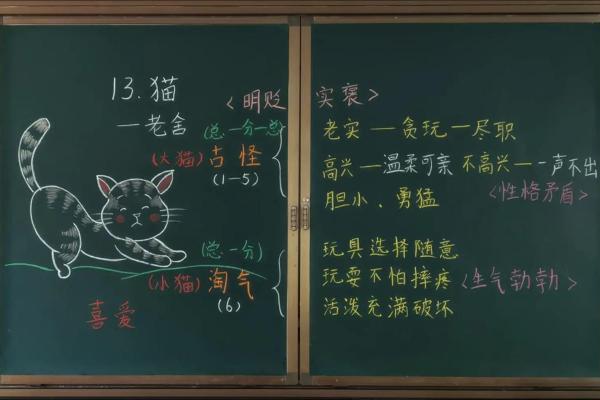 13.猫
一老舍
<明贬 实褒>
(总一分一总)
(大猫) 古怪
(1-5)
老实一贪玩一尽职
高兴一温柔可亲 不高兴一一声不出
胆小、勇猛
<性格矛盾>
(总一分)
(小猫) 淘气
(6)
玩具选择随意
玩耍不怕摔疼
活泼充满破坏
<生气勃勃>
喜爱